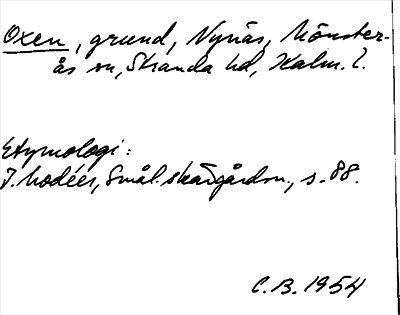 Oxen, grund, Nynäs, Mönster-
ås sn, Stranda hd, Kalm. l.
Etymologi:
J. Modéer, Smål. skärgårdsn., s. 88.
C.B. 1954